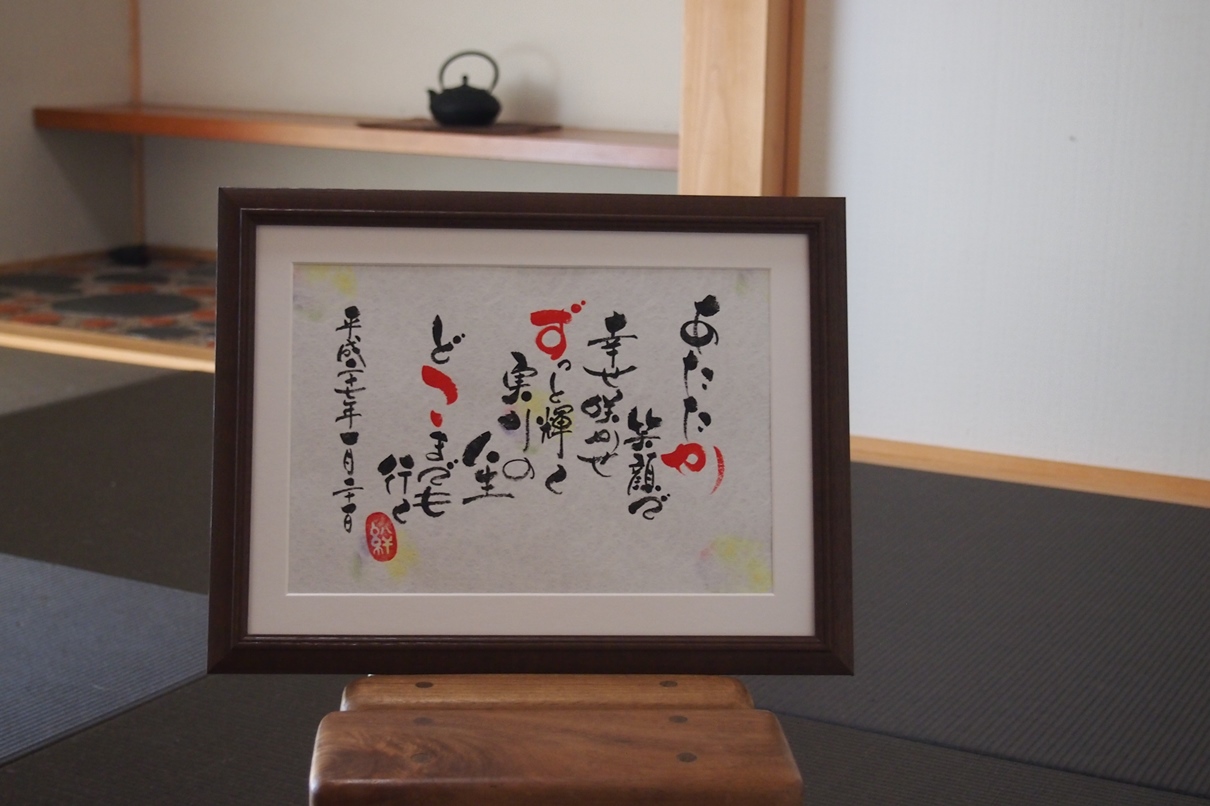 あたたか
笑顔で
幸せ咲かせ
ずっと輝く
実りの
人生
どこまでも
行く
平成二十七年